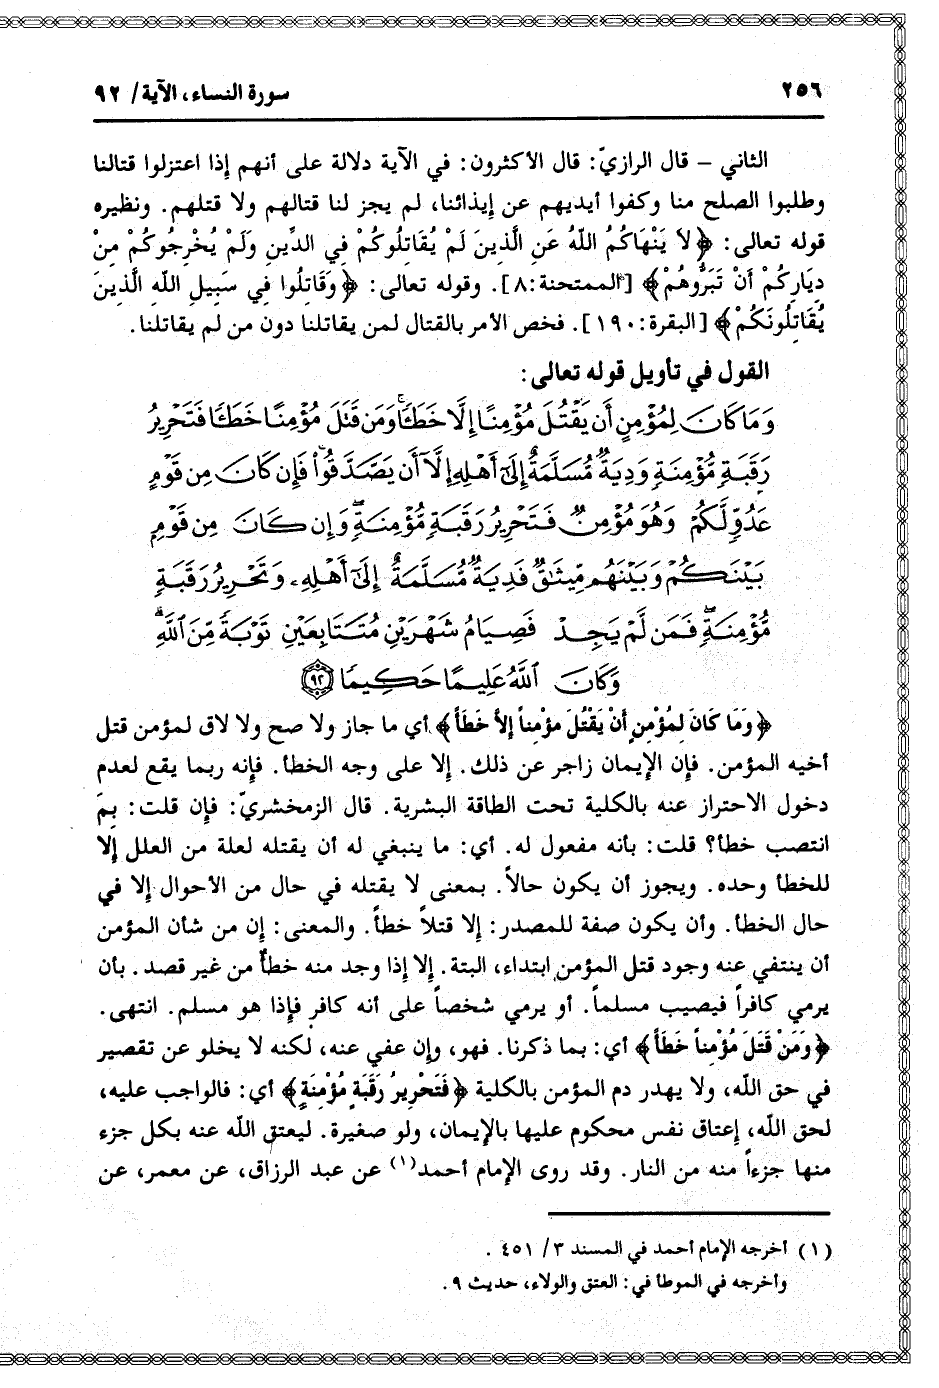 ٢٥٦ سورة النساء، الآية/ ٩٢
الثاني – قال الرازيّ: قال الأكثرون: في الآية دلالة على أنهم إذا اعتزلوا قتالنا
وطلبوا الصلح منا وكفوا أيديهم عن إيذائنا، لم يجز لنا قتالهم ولا قتلهم. ونظيره
قوله تعالى: ﴿لاَ يَنْهَاكُمُ اللّهُ عَنِ الَّذِينَ لَمْ يُقَاتِلُوكُمْ فِي الدِّينِ وَلَمْ يُخْرِجُوكُمْ مِنْ
دِيَارِكُمْ أَنْ تَبَرُّوهُمْ﴾ [الممتحنة:٨]. وقوله تعالى: ﴿وَقَاتِلُوا فِي سَبِيلِ اللّهِ الَّذِينَ
يُقَاتِلُونَكُمْ﴾ [البقرة:١٩٠]. فخص الأمر بالقتال لمن يقاتلنا دون من لم يقاتلنا.
القول في تأويل قوله تعالى:
وَمَا كَانَ لِمُؤْمِنٍ أَن يَقْتُلَ مُؤْمِنًا إِلَّا خَطَـًٔا وَمَن قَتَلَ مُؤْمِنًا خَطَـًٔا فَتَحْرِيرُ
رَقَبَةٍ مُّؤْمِنَةٍ وَدِيَةٌ مُّسَلَّمَةٌ إِلَىٰٓ أَهْلِهِۦٓ إِلَّآ أَن يَصَّدَّقُوا۟ فَإِن كَانَ مِن قَوْمٍ
عَدُوٍّ لَّكُمْ وَهُوَ مُؤْمِنٌ فَتَحْرِيرُ رَقَبَةٍ مُّؤْمِنَةٍ وَإِن كَانَ مِن قَوْمٍ
بَيْنَكُمْ وَبَيْنَهُم مِّيثَٰقٌ فَدِيَةٌ مُّسَلَّمَةٌ إِلَىٰٓ أَهْلِهِۦ وَتَحْرِيرُ رَقَبَةٍ
مُّؤْمِنَةٍ فَمَن لَّمْ يَجِدْ فَصِيَامُ شَهْرَيْنِ مُتَتَابِعَيْنِ تَوْبَةً مِّنَ ٱللَّهِ
وَكَانَ ٱللَّهُ عَلِيمًا حَكِيمًا ﴿٩٢﴾
﴿وَمَا كَانَ لِمُؤْمِنٍ أَنْ يَقْتُلَ مؤْمِناً إِلاَّ خَطَأً﴾ أي ما جاز ولا صح ولا لاق لمؤمن قتل
أخيه المؤمن. فإن الإيمان زاجر عن ذلك. إلا على وجه الخطأ. فإنه ربما يقع لعدم
دخول الاحتراز عنه بالكلية تحت الطاقة البشرية. قال الزمخشريّ: فإن قلت: بِمَ
انتصب خطأ؟ قلت: بأنه مفعول له. أي: ما ينبغي له أن يقتله لعلة من العلل إلا
للخطأ وحده. ويجوز أن يكون حالاً. بمعنى لا يقتله في حال من الأحوال إلا في
حال الخطأ. وأن يكون صفة للمصدر: إلا قتلاً خطأ. والمعنى: إن من شأن المؤمن
أن ينتفي عنه وجود قتل المؤمن ابتداء، البتة. إلا إذا وجد منه خطأ من غير قصد. بأن
يرمي كافراً فيصيب مسلماً. أو يرمي شخصاً على أنه كافر فإذا هو مسلم. انتهى.
﴿وَمَنْ قَتَلَ مُؤْمِناً خَطَأً﴾ أي: بما ذكرنا. فهو، وإن عفي عنه، لكنه لا يخلو عن تقصير
في حق اللّه، ولا يهدر دم المؤمن بالكلية ﴿فَتَحْرِيرُ رَقَبَةٍ مُؤْمِنَةٍ﴾ أي: فالواجب عليه،
لحق اللّه، إعتاق نفس محكوم عليها بالإيمان، ولو صغيرة. ليعتق اللّه عنه بكل جزء
منها جزءاً منه من النار. وقد روى الإمام أحمد(١) عن عبد الرزاق، عن معمر، عن
(١) أخرجه الإمام أحمد في المسند ٣/ ٤٥١ .
وأخرجه في الموطأ في: العتق والولاء، حديث ٩.